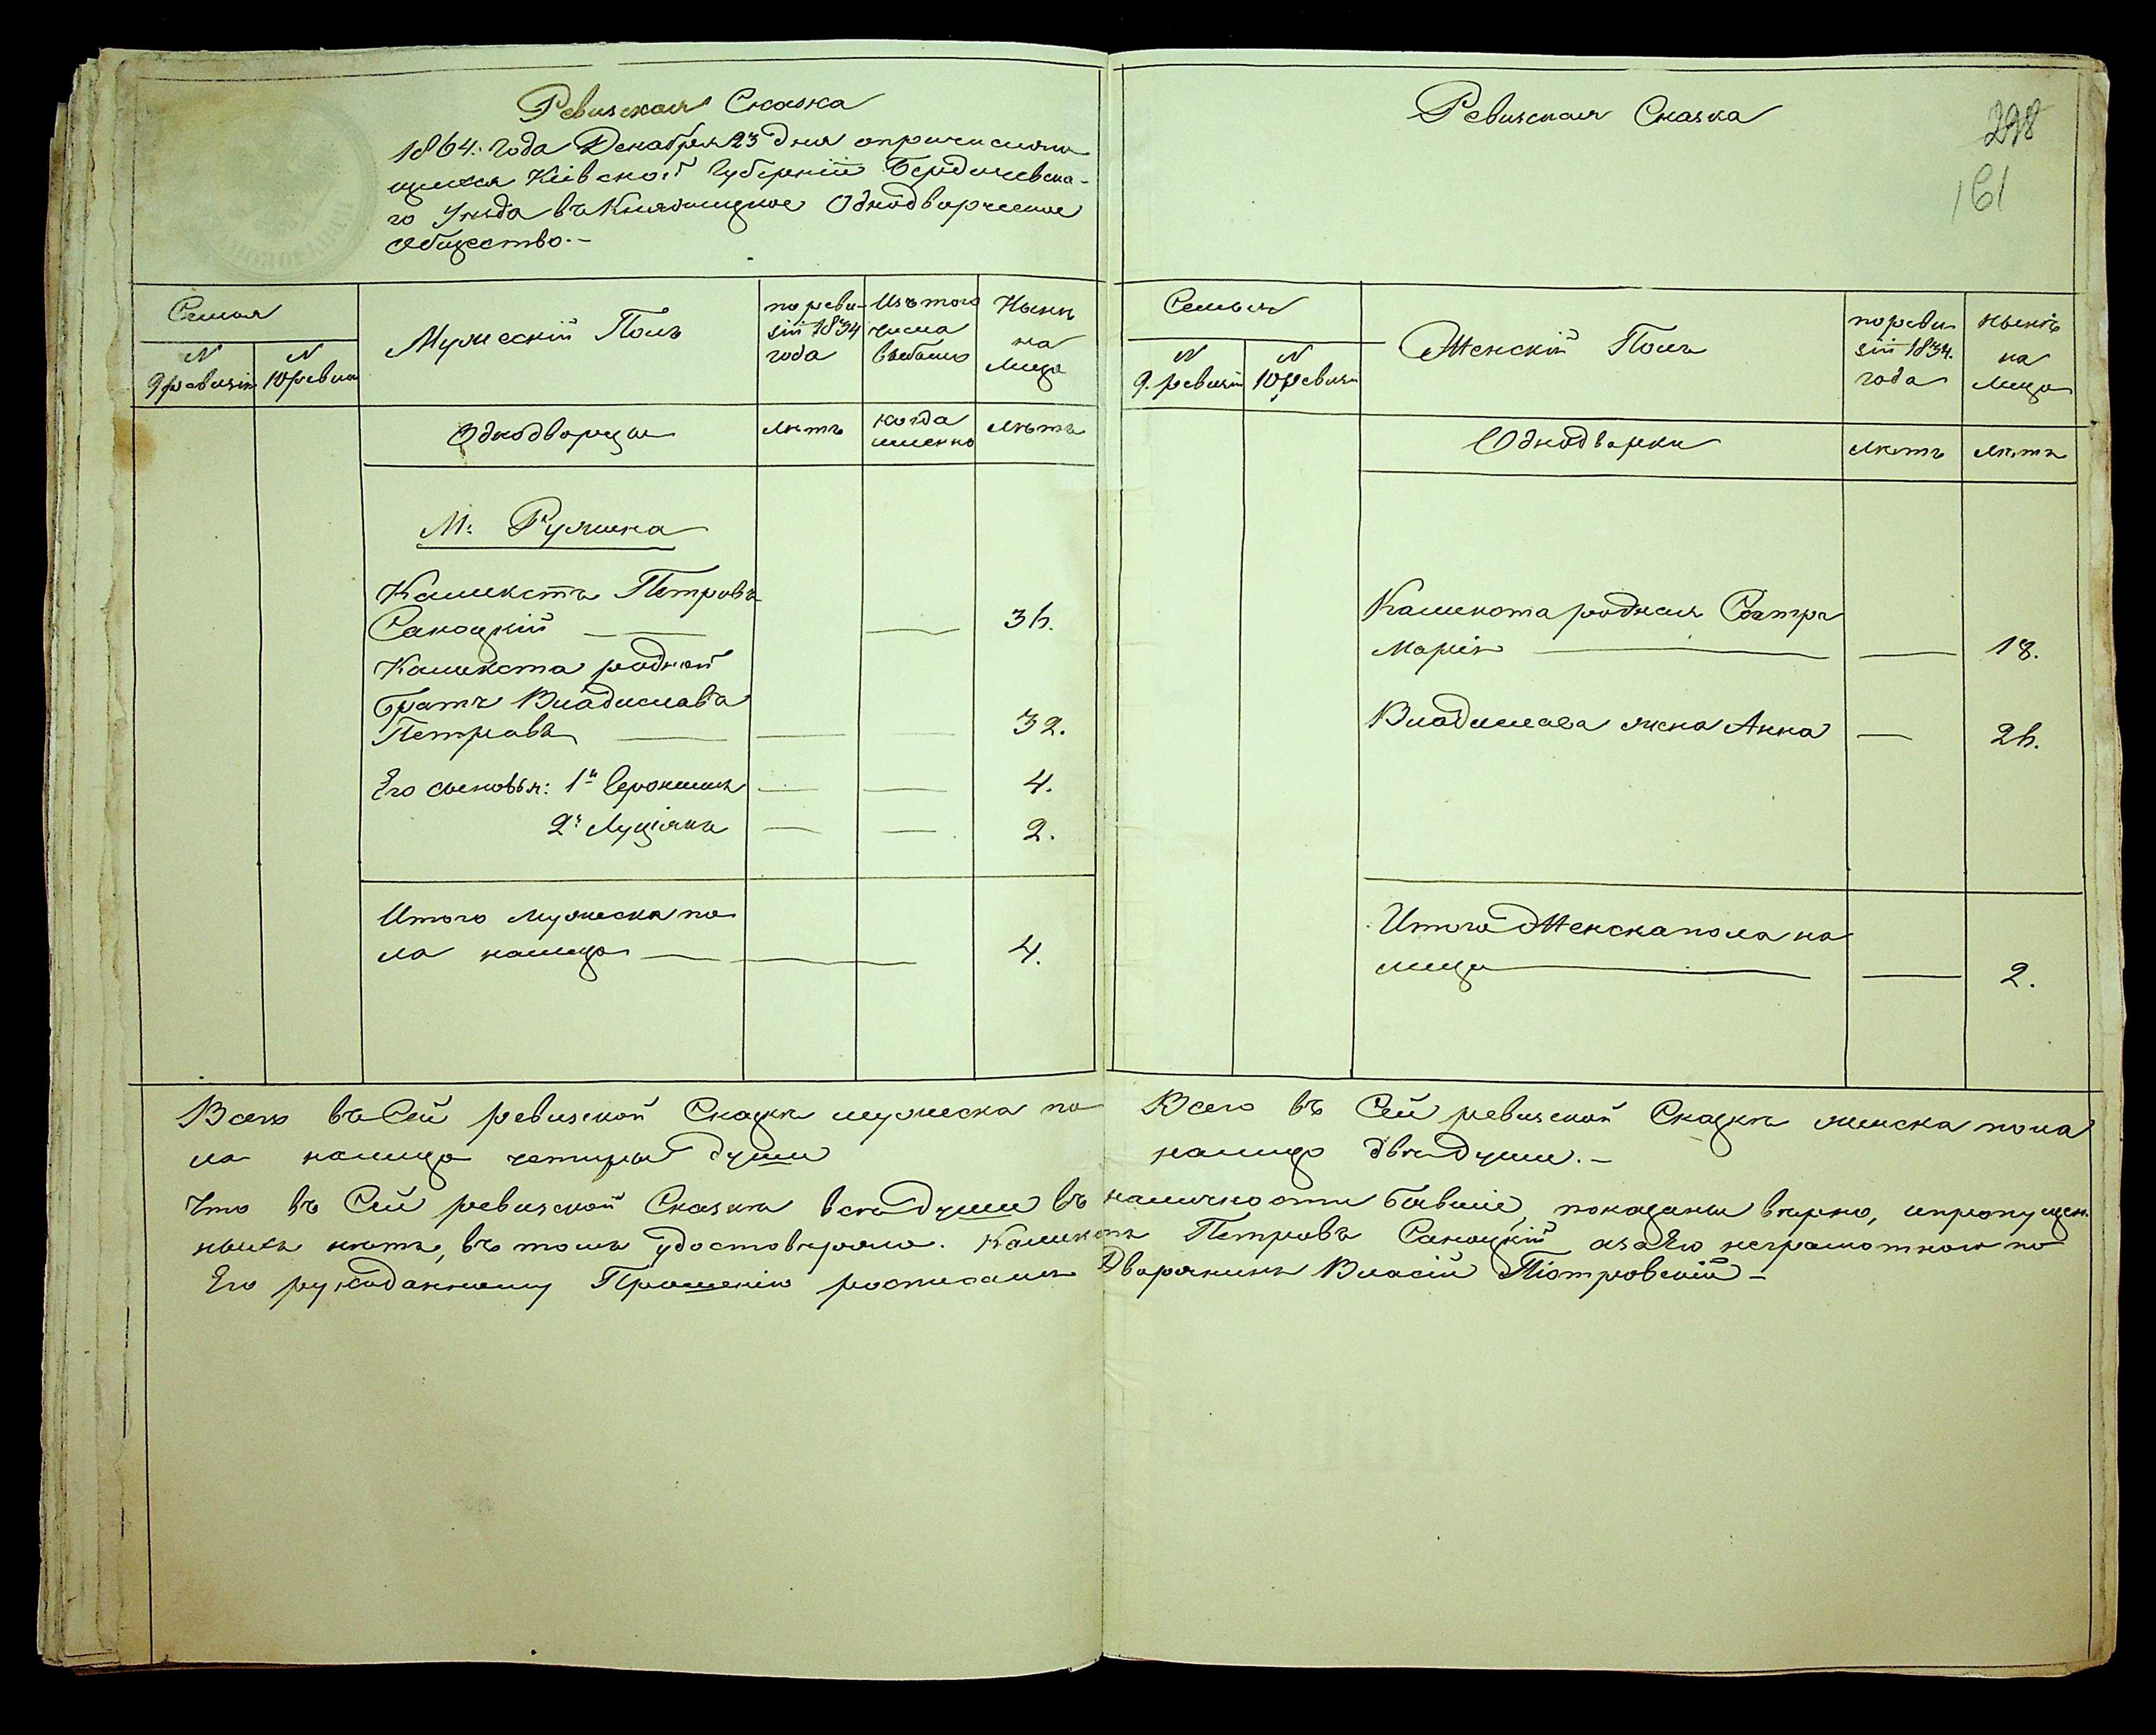 Ревизская Сказка
1864. года Декабря 23 дня опричисляю
щихся Кіевской Губерніи Бердичевска-
го Уѣзда въ Княжицкое Однодворческое
Общество.-
Семья
N
9 ревизіи
N
10 ревизіи
Мужескій Полъ
по реви-
зіи 1834
года
Изъ того
числа
выбыло
Нынѣ
на
лицо
Однодворцы
лѣтъ
когда
именно
лѣтъ
М: Ружина
Каликстъ Петровъ
Саноцкій
36.
Каликста родной
братъ Владиславъ
Петровъ
32.
Его сыновья: 1й Іеронимъ
4.
2й Луціянъ
2.
Итого мужеска по
ла налицо
4.
Всего въ Сей ревизской Сказкѣ мужеска по
ла налицо четыры души
Ревизская Сказка
298
161
Семья
N
9. ревизіи
N
10 ревизіи
Женскій Полъ
по реви
зіи 1834.
года
нынѣ
на
лицо
Однодворки
лѣтъ
лѣтъ
Каликста родная Сестра
Марія
18.
Владислава жена Анна
26.
Итого Женска пола на
лицо
2.
Всего въ Сей ревизской Сказкѣ женска пола
налицо двѣ души.-
Что въ Сей ревизской Сказкѣ всѣ души въ наличности бывшіе, показаны вѣрно, ипропущен
ныхъ нѣтъ, въ томъ удостовѣряю. Каликстъ Петровъ Саноцкій азаЕго неграмотного по
Его рукоданному Прошенію росписался Дворянинъ Власій Піотровскій -